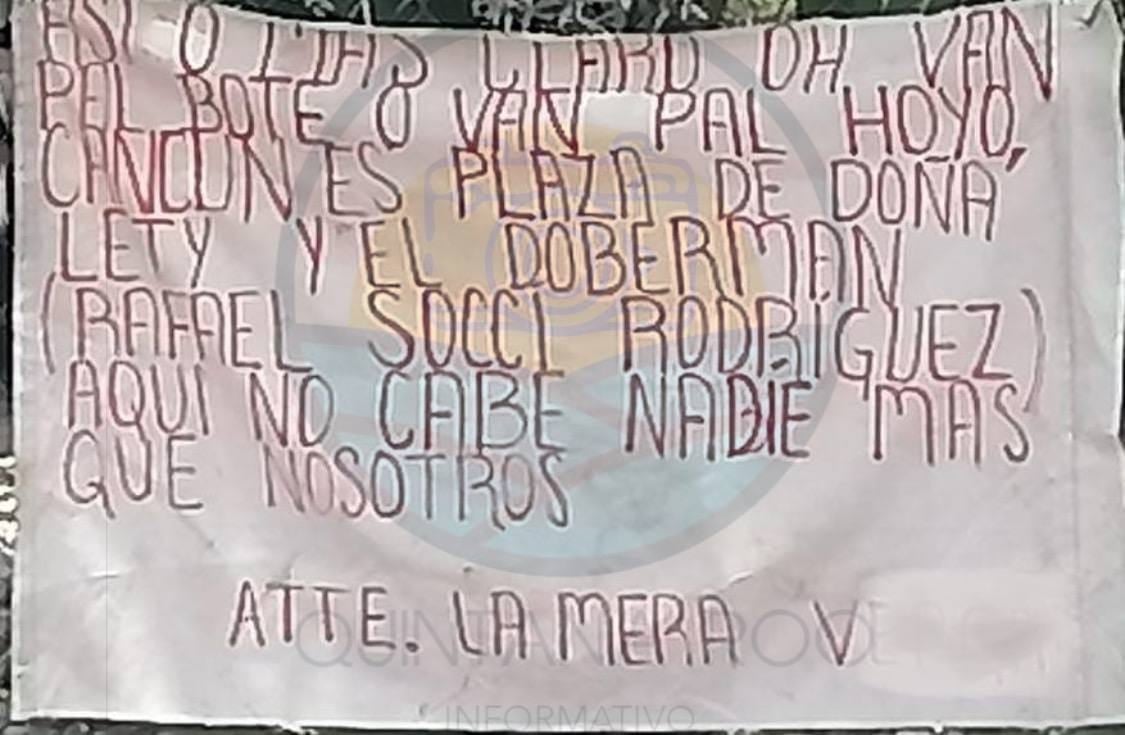 ASI O MAS CLARO OH VAN
PAL BOTE O VAN PAL HOYO,
CANCUN ES PLAZA DE DOÑA
LETY Y EL DOBERMAN
(RAFAEL SOCCI RODRÍGUEZ)
AQUI NO CABE NADIE MAS
QUE NOSOTROS
ATTE. LA MERA V
QUINTANA ROO
INFORMATIVO